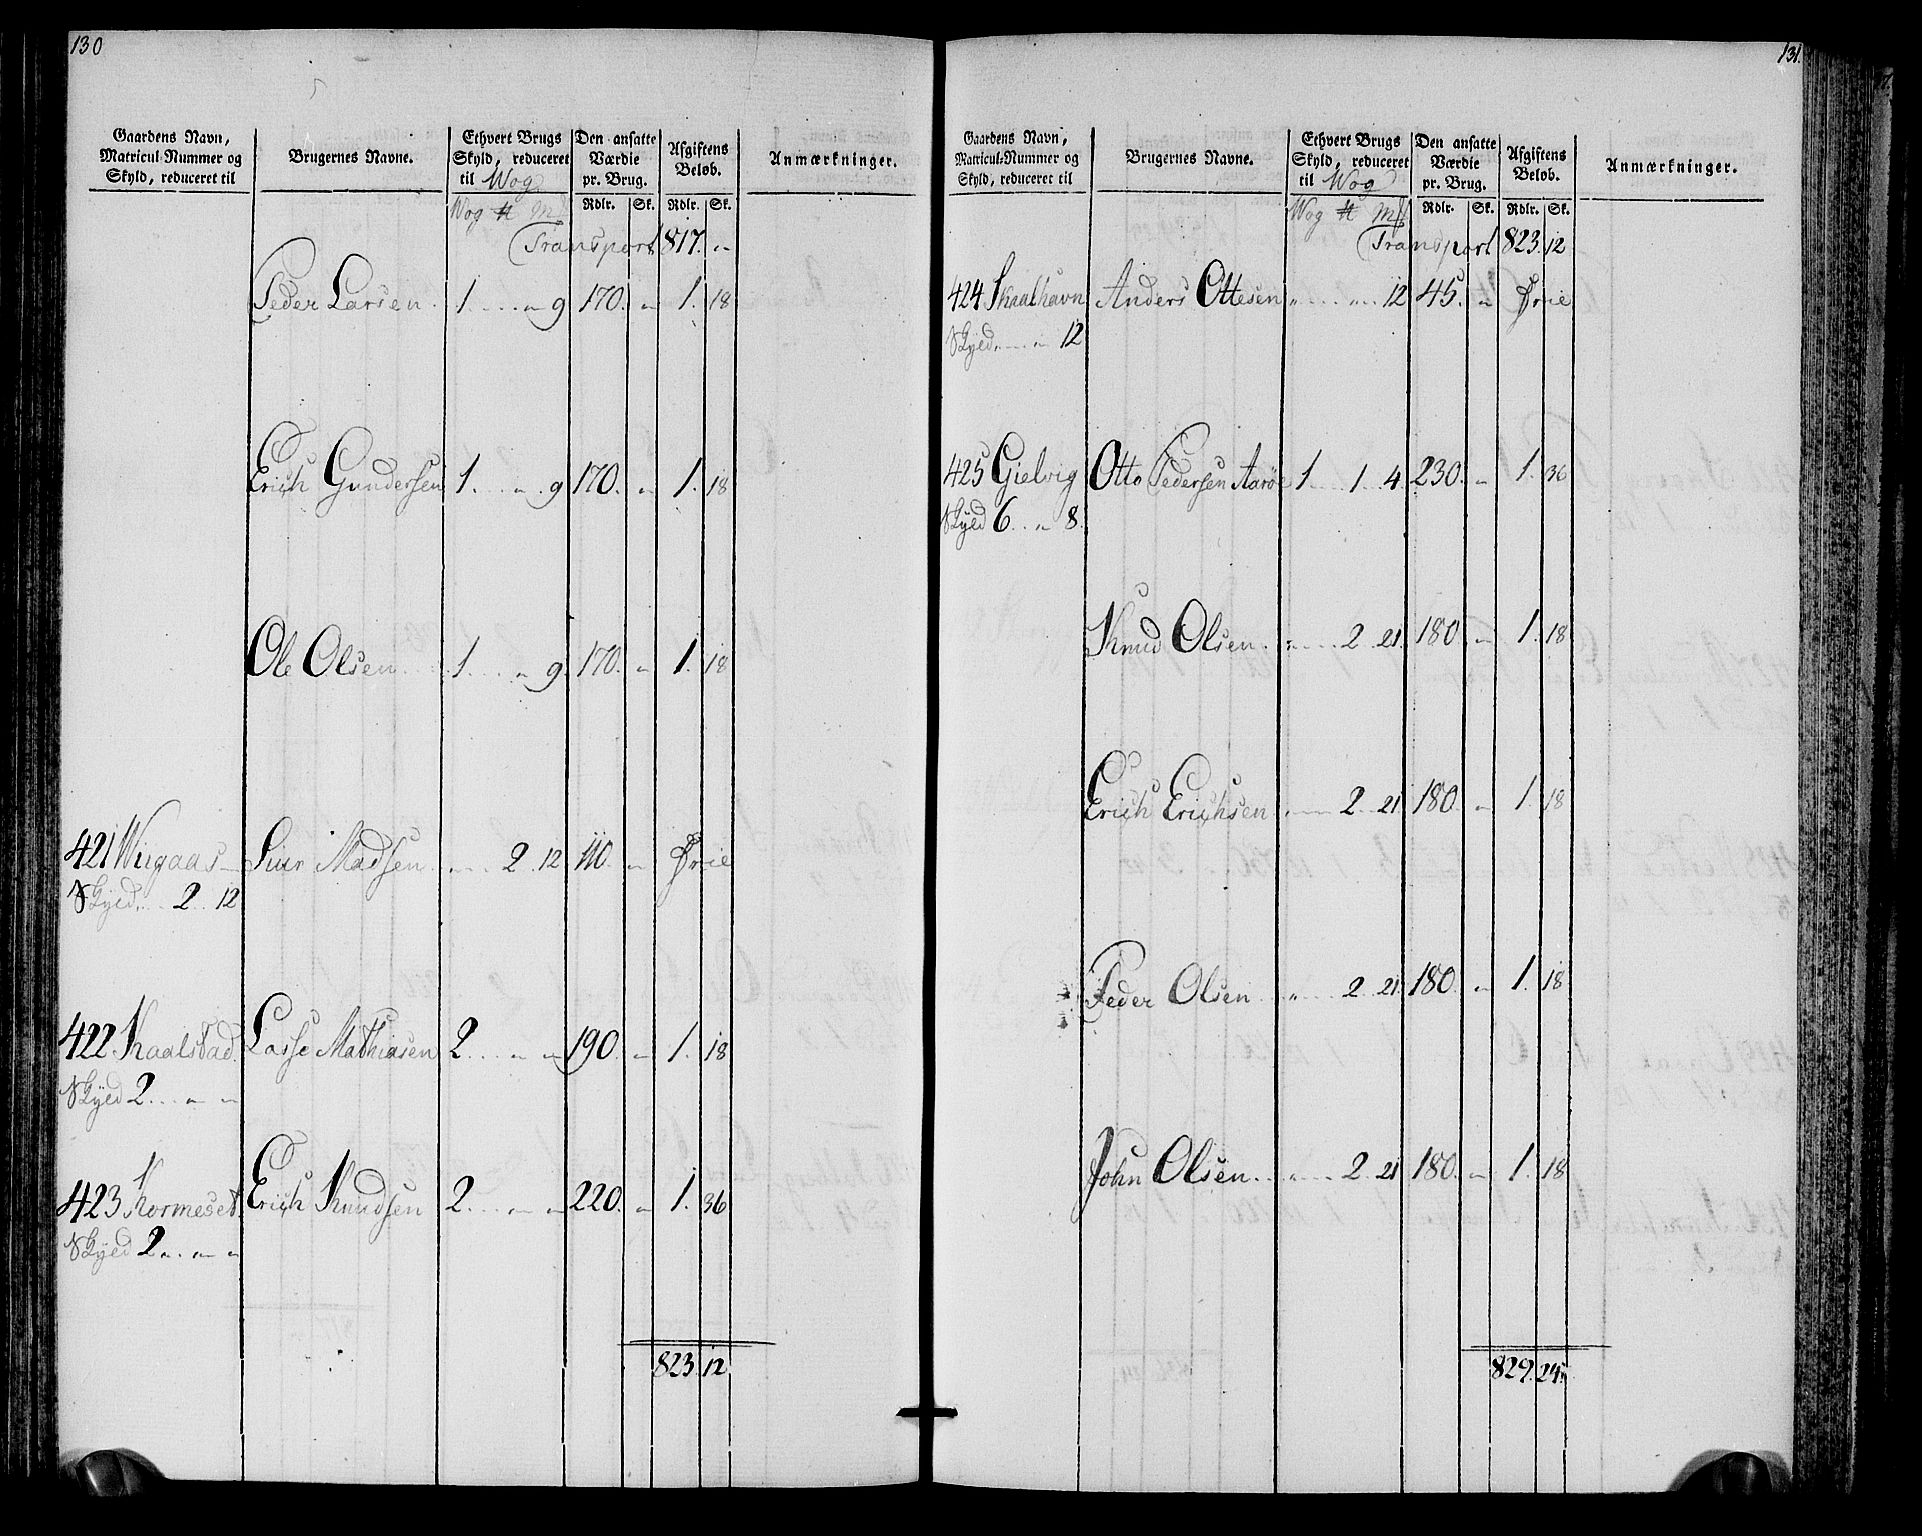 130
Gaardens Navn, Matricul-Nummer og Skyld, reduceret til
Brugernes Navne.
Ethvert Brugs Skyld, reduceret til Wog
Den ansatte Værdie pr. Brug.
Afgiftens Beløb.
Anmærkninger.
Wog ℔ Mk Rdlr. Sk. Rdlr. Sk.
Transport 817. „
Peder Larsen 1 „ 9 170. „ 1. 18
Erich Gundersen 1 „ 9 170. „ 1. 18
Ole Olsen 1 „ 9. 170. „ 1. 18
421 Wiigaas Siur Madsen 2 12 110. „ Frie
Skyld 2 12
422 Kaalstad. Lasse Mathiasen 2 „ „ 190. „ 1. 18
Skyld 2 „ „
423 Kormeset. Erich Knudsen 2 „ „ 220. „ 1. 36
Skyld 2 „ „ „
823. 12
131.
Gaardens Navn, Matricul-Nummer og Skyld, reduceret til
Brugernes Navne.
Ethvert Brugs Skyld, reduceret til Wog
Den ansatte Værdie pr. Brug.
Afgiftens Beløb.
Anmærkninger.
Wog ℔ Mk Rdlr. Sk. Rdlr. Sk.
Transport 823. 12
424 Skaalhavn Anders Ottesen „ „ 12 45. „ Frie
Skyld „ 12
425 Gielvig Otto Pedersen Aarøe 1 1 4. 230. „ 1. 36
Skyld 6 „ 8.
Knud Olsen „ 2 21. 180. „ 1. 18
Erich Erichsen „ 2 21 180. „ 1. 18
Peder Olsen „ 2 21 180. „ 1. 18
John Olsen „ 2 21 180. „ 1. 18
829. 24.